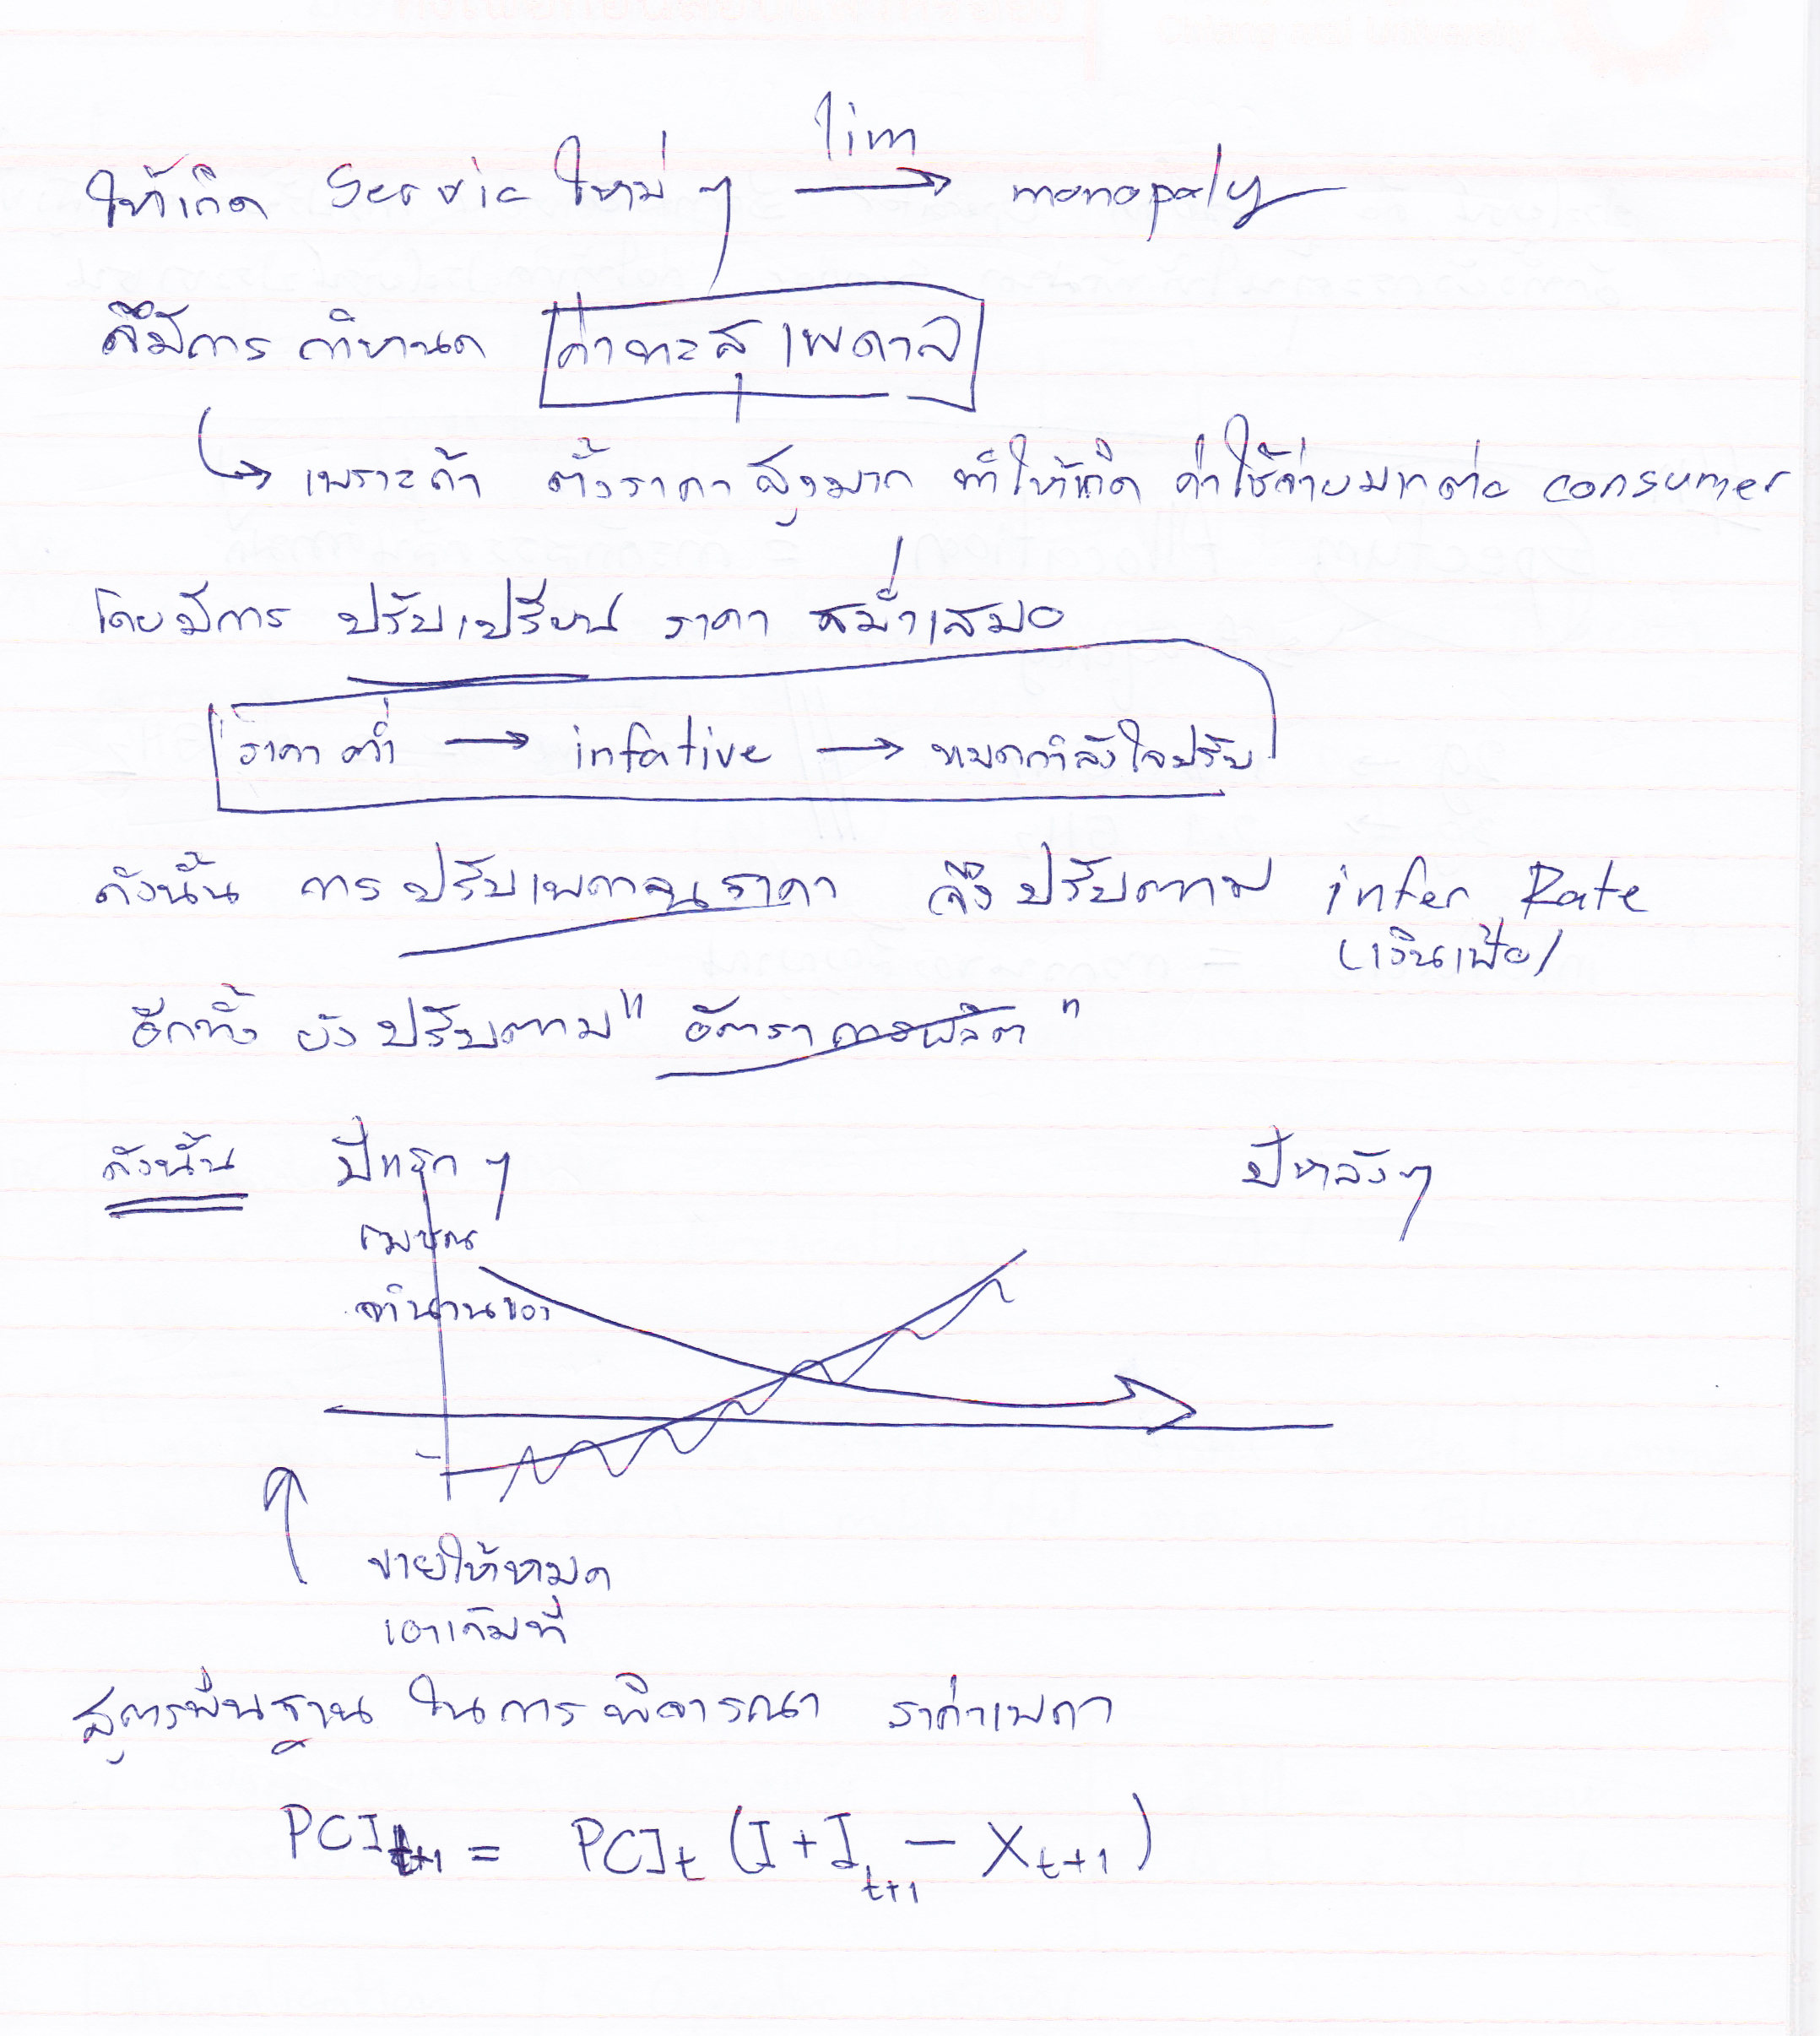 lim
ให้เกิด Servic ใหม่ ๆ → monopoly
คือมีการ กำหนด ค่าทะลุเพดาล
↳ เพราะถ้า ตั้งราคาสูงมาก ทำให้เกิด ค่าใช้จ่ายมากต่อ consumer
โดยมีการ ปรับเปรียน ราคา สม่ำเสมอ
ราคาต่ำ → → หมดกำลังใจปรับ
ดังนั้น การปรับเพดานราคา จึงปรับตาม infer Rate
(เงินเฟ้อ)
อีกทั้ง ยังปรับตาม " อัตราการผลิต "
ดังนั้น ปีแรก ๆ ปีหลังๆ
จำนวนของ
ขายให้หมด
เอาเต็มที่
สูตรพื้นฐาน ในการพิจารณา ราค่าเพดา
PCI_{t+1} = PCI_t (I + I_{t+1} - X_{t+1})